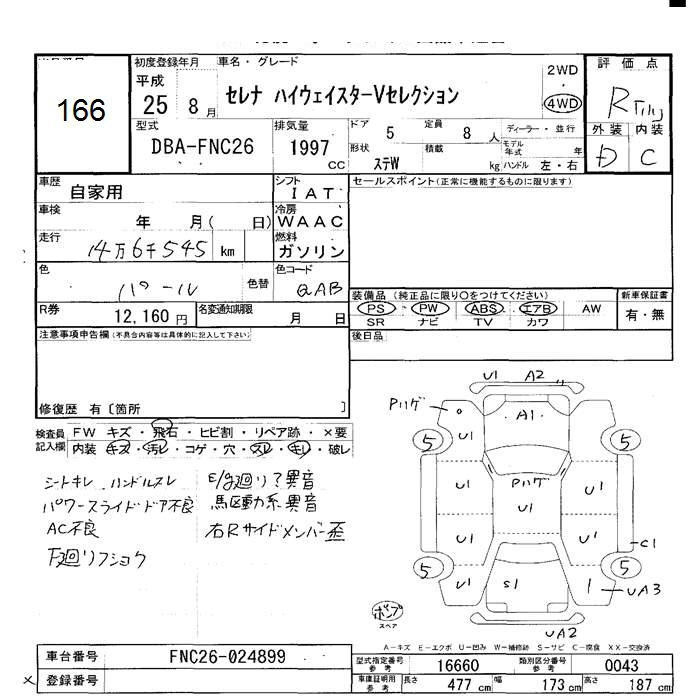 初度登録年月 車名・グレード 2WD 評価点
166
平成 25年 8月 セレナ ハイウェイスターVセレクション 4WD R
型式 排気量 ドア 5 定員 8人 ディーラー・並行 外装 内装
DBA-FNC26 1997 CC 形状 ステW 積載 kg モデル年式 年 ハンドル 左・右 D C
車歴 自家用 シフト IAT セールスポイント(正常に機能するものに限ります)
車検 年 月( 日) 冷房 WAAC
走行 14万6千545 km 燃料 ガソリン
色 パール 色替 色コード QAB
装備品(純正品に限り○をつけてください) 新車保証書
R券 12,160円 名変通知期限 月 日 PS PW ABS エアB AW 有・無
SR ナビ TV カワ
注意事項申告欄(不具合内容等は具体的に記入して下さい) 後日品
修復歴 有〔箇所 〕
検査員記入欄 FW キズ・飛石・ヒビ割・リペア跡・×要
内装 キズ・汚レ・コゲ・穴・スレ・キレ・破レ
シートキレ、ハンドルスレ E/g廻り?異音
パワースライドドア不良 駆動系異音
AC不良 右Rサイドメンバー歪
下廻リフショク
U1 A2
Pハゲ A1
U1
5 5
U1 Pハゲ U1
U1
U1 U1
C1
5 5
U1 S1 1 UA3
ポンプ
スペア
UA2
A-キズ E-エクボ U-凹み W-補修跡 S-サビ C-腐食 XX-交換済
車台番号 FNC26-024899
型式指定番号 参考 16660 類別区分番号 参考 0043
× 登録番号
車庫証明用 参考 長さ 477 cm 幅 173 cm 高さ 187 cm